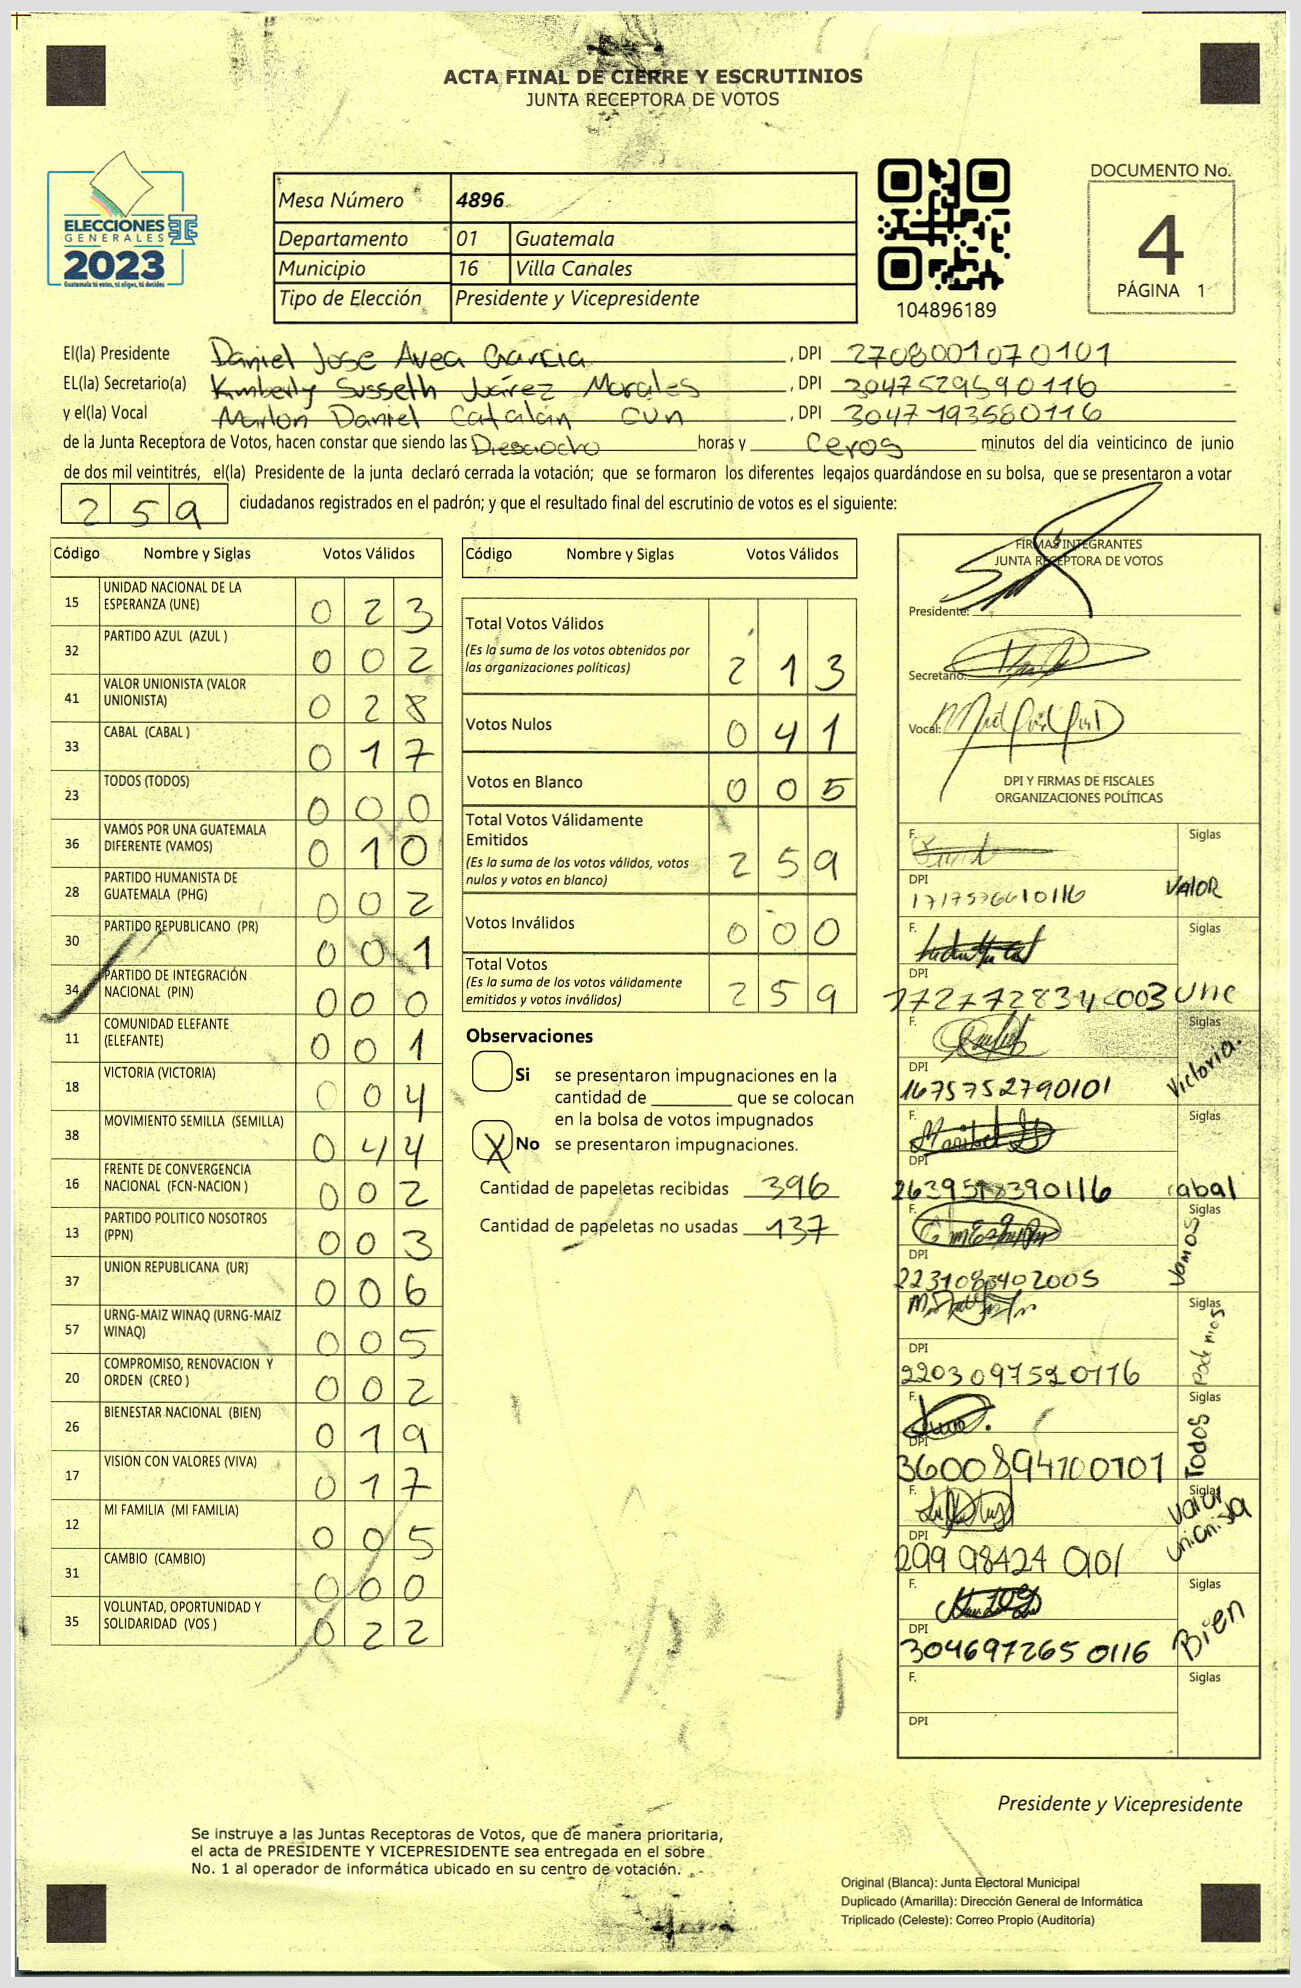 ACTA FINAL DE CIERRE Y ESCRUTINIOS
JUNTA RECEPTORA DE VOTOS
ELECCIONES
GENERALES
2023
Guatemala tú votas, tú eliges, tú decides
Mesa Número 4896
Departamento 01 Guatemala
Municipio 16 Villa Canales
Tipo de Elección Presidente y Vicepresidente
104896189
DOCUMENTO No.
4
PÁGINA 1
El(la) Presidente Daniel Jose Avea Garcia, DPI 2708001070101
EL(la) Secretario(a) Kimberly Susseth Juárez Morales, DPI 3047529590116
y el(la) Vocal Marlon Daniel Catalán Cun, DPI 3047193580116
de la Junta Receptora de Votos, hacen constar que siendo las Diesciocho horas y Ceros minutos del día veinticinco de junio
de dos mil veintitrés, el(la) Presidente de la junta declaró cerrada la votación; que se formaron los diferentes legajos guardándose en su bolsa, que se presentaron a votar
259 ciudadanos registrados en el padrón; y que el resultado final del escrutinio de votos es el siguiente:
Código Nombre y Siglas Votos Válidos
15 UNIDAD NACIONAL DE LA ESPERANZA (UNE) 023
32 PARTIDO AZUL (AZUL ) 002
41 VALOR UNIONISTA (VALOR UNIONISTA) 028
33 CABAL (CABAL ) 017
23 TODOS (TODOS) 000
36 VAMOS POR UNA GUATEMALA DIFERENTE (VAMOS) 010
28 PARTIDO HUMANISTA DE GUATEMALA (PHG) 002
30 PARTIDO REPUBLICANO (PR) 001
34 PARTIDO DE INTEGRACIÓN NACIONAL (PIN) 000
11 COMUNIDAD ELEFANTE (ELEFANTE) 001
18 VICTORIA (VICTORIA) 004
38 MOVIMIENTO SEMILLA (SEMILLA) 044
16 FRENTE DE CONVERGENCIA NACIONAL (FCN-NACION ) 002
13 PARTIDO POLITICO NOSOTROS (PPN) 003
37 UNION REPUBLICANA (UR) 006
57 URNG-MAIZ WINAQ (URNG-MAIZ WINAQ) 005
20 COMPROMISO, RENOVACION Y ORDEN (CREO ) 002
26 BIENESTAR NACIONAL (BIEN) 019
17 VISION CON VALORES (VIVA) 017
12 MI FAMILIA (MI FAMILIA) 005
31 CAMBIO (CAMBIO) 000
35 VOLUNTAD, OPORTUNIDAD Y SOLIDARIDAD (VOS ) 022
Código Nombre y Siglas Votos Válidos
Total Votos Válidos 213
(Es la suma de los votos obtenidos por
las organizaciones políticas)
Votos Nulos 041
Votos en Blanco 005
Total Votos Válidamente
Emitidos 259
(Es la suma de los votos válidos, votos
nulos y votos en blanco)
Votos Inválidos 000
Total Votos 259
(Es la suma de los votos válidamente
emitidos y votos inválidos)
Observaciones
Si se presentaron impugnaciones en la
cantidad de ________ que se colocan
en la bolsa de votos impugnados
X No se presentaron impugnaciones.
Cantidad de papeletas recibidas 396
Cantidad de papeletas no usadas 137
FIRMAS INTEGRANTES
JUNTA RECEPTORA DE VOTOS
Presidente:
Secretario:
Vocal:
DPI Y FIRMAS DE FISCALES
ORGANIZACIONES POLÍTICAS
F. Siglas
DPI
VALOR
F. Siglas
DPI
Une
F. Siglas
DPI
1675752790101 Victoria.
F. Siglas
DPI
Cabal
F. Siglas
DPI
2231083402005 Vamos
Siglas
DPI
2203097520116 Podemos
F. Siglas
DPI
3600894100101 TODOS
F. Siglas
DPI
299 98424 0101 Valor Unionista
F. Siglas
DPI
304697265 0116 Bien
F. Siglas
DPI
Presidente y Vicepresidente
Se instruye a las Juntas Receptoras de Votos, que de manera prioritaria,
el acta de PRESIDENTE Y VICEPRESIDENTE sea entregada en el sobre
No. 1 al operador de informática ubicado en su centro de votación.
Original (Blanca): Junta Electoral Municipal
Duplicado (Amarilla): Dirección General de Informática
Triplicado (Celeste): Correo Propio (Auditoría)